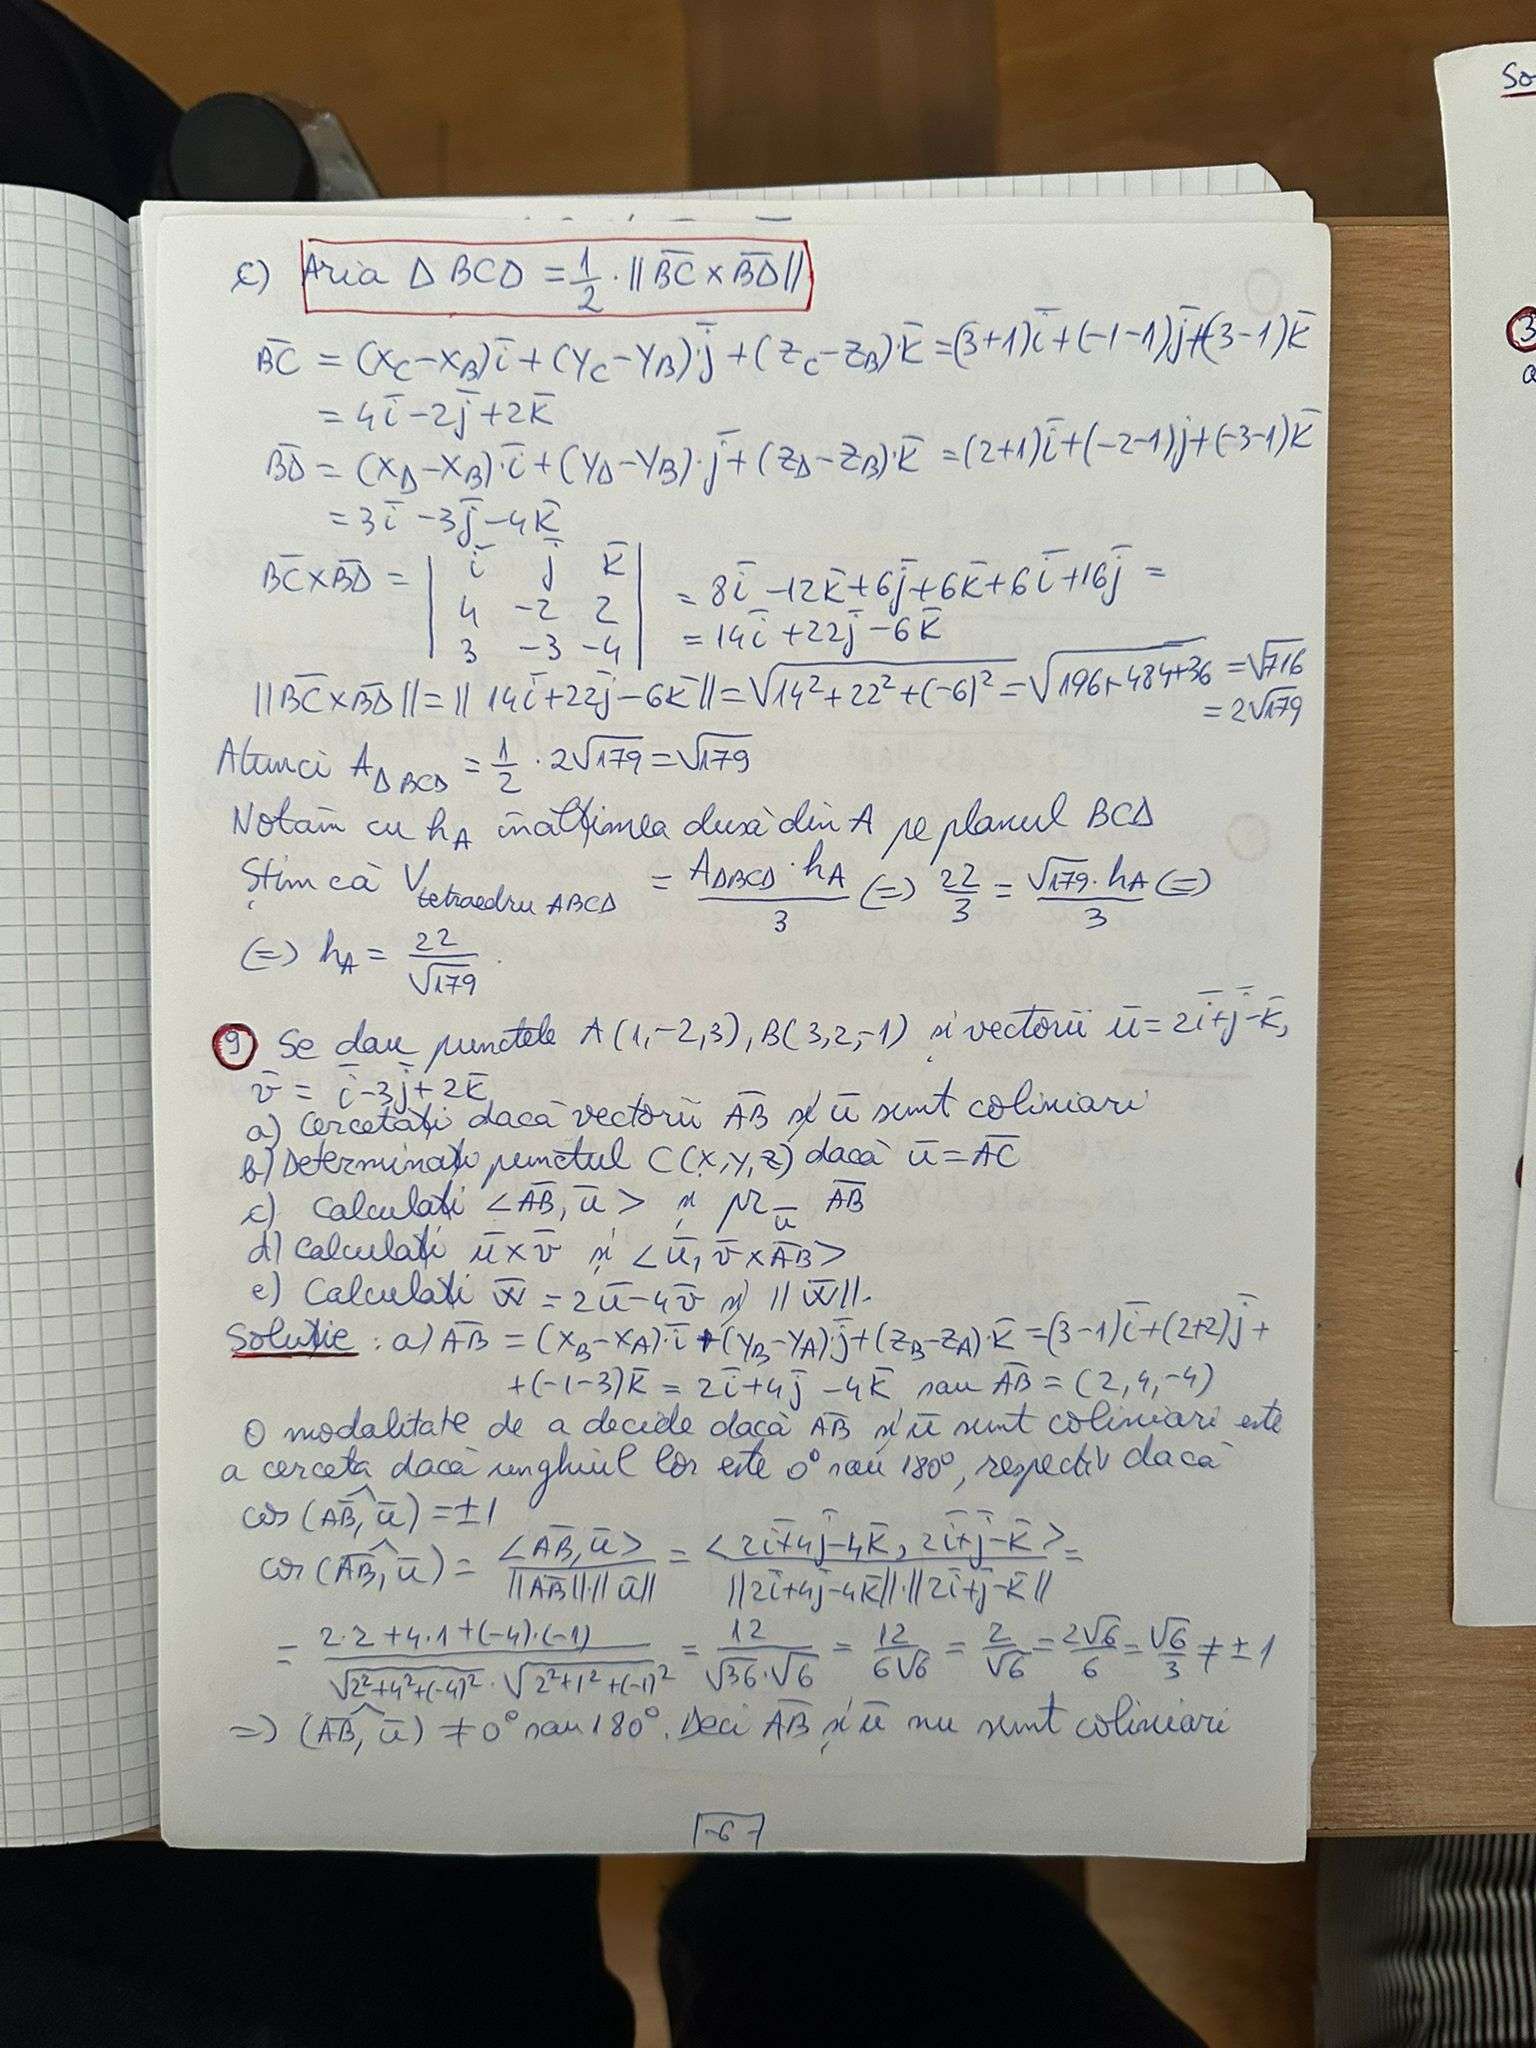 c) Aria Δ BCD = 1/2 · ||B̄C̄ × B̄D̄||
B̄C̄ = (x_C − x_B)ī + (y_C − y_B)·j̄ + (z_C − z_B)·k̄ = (3+1)ī + (−1−1)j̄ + (3−1)k̄
= 4ī − 2j̄ + 2k̄
B̄D̄ = (x_D − x_B)·ī + (y_D − y_B)·j̄ + (z_D − z_B)·k̄ = (2+1)ī + (−2−1)j + (−3−1)k̄
= 3ī − 3j̄ − 4k̄
B̄C̄ × B̄D̄ = | ī j̄ k̄ | = 8ī − 12k̄ + 6j̄ + 6k̄ + 6ī + 16j̄ =
| 4 −2 2 | = 14ī + 22j̄ − 6k̄
| 3 −3 −4 |
||B̄C̄ × B̄D̄|| = || 14ī + 22j̄ − 6k̄ || = √(14² + 22² + (−6)²) = √(196 + 484 + 36) = √716
= 2√179
Atunci A_ΔBCD = 1/2 · 2√179 = √179
Notăm cu h_A înălțimea dusă din A pe planul BCD
Știm că V_tetraedru ABCD = (A_ΔBCD · h_A)/3 (=) 22/3 = (√179 · h_A)/3 (=)
(=) h_A = 22/√179.
9 Se dau punctele A(1,−2,3), B(3,2,−1) și vectorii ū = 2ī + j̄ − k̄,
v̄ = ī − 3j̄ + 2k̄
a) Cercetați dacă vectorii ĀB̄ și ū sunt coliniari
b) Determinați punctul C(x,y,z) dacă ū = ĀC̄
c) Calculați <ĀB̄, ū> și pr_ū ĀB̄
d) Calculați ū × v̄ și <ū, v̄ × ĀB̄>
e) Calculați w̄ = 2ū − 4v̄ și ||w̄||.
Soluție : a) ĀB̄ = (x_B − x_A)·ī + (y_B − y_A)·j̄ + (z_B − z_A)·k̄ = (3−1)ī + (2+2)j̄ +
+ (−1−3)k̄ = 2ī + 4j̄ − 4k̄ sau ĀB̄ = (2, 4, −4)
O modalitate de a decide dacă ĀB̄ și ū sunt coliniari este
a cerceta dacă unghiul lor este 0° sau 180°, respectiv dacă
cos (ĀB̄, ū) = ±1
cos (ĀB̄, ū) = <ĀB̄, ū> / (||ĀB̄||·||ū||) = <2ī+4j̄−4k̄, 2ī+j̄−k̄> / (||2ī+4j̄−4k̄||·||2ī+j̄−k̄||) =
= (2·2 + 4·1 + (−4)·(−1)) / (√(2²+4²+(−4)²) · √(2²+1²+(−1)²)) = 12/(√36·√6) = 12/(6√6) = 2/√6 = 2√6/6 = √6/3 ≠ ±1
=> (ĀB̄, ū) ≠ 0° sau 180°. Deci ĀB̄ și ū nu sunt coliniari
−6−
So
3
a